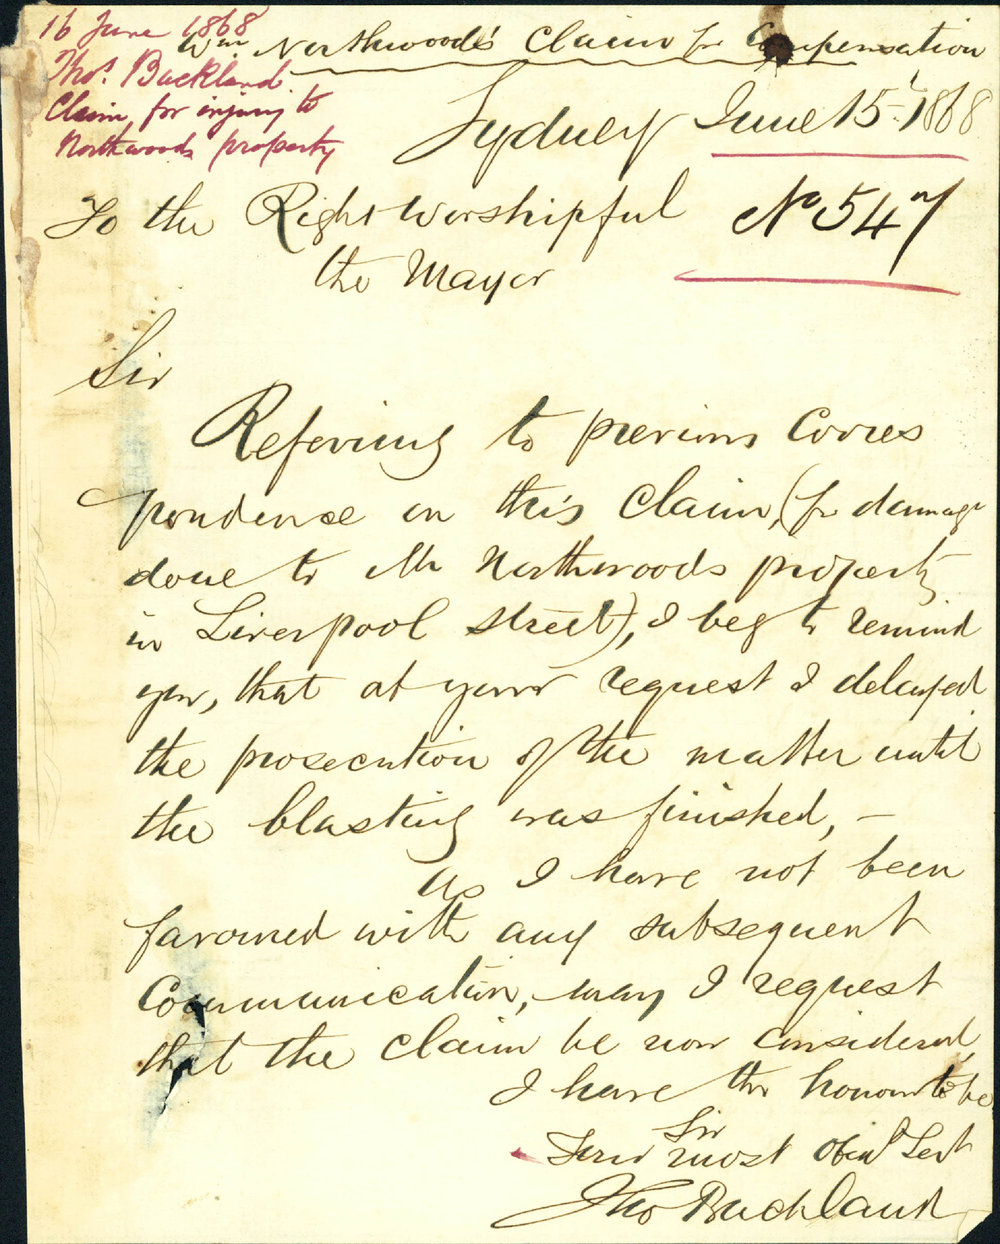 16 June 1868
Thos. Buckland.
Claim, for injury to
Northwoods property
Wm Northwood's Claim for Compensation
Sydney June 15th 1868
No 547
To the Right Worshipful
the Mayor
Sir
Referring to previous Corres
pondence on this Claim, (for damage
done to Mr Northwoods property
in Liverpool Street), I beg to remind
you, that at your request I delayed
the prosecution of the matter until
the blasting was finished, –
As I have not been
favoured with any subsequent
Communication, may I request
that the claim be now considered,
I have the honour to be
Sir
Your most Obed Sert
Tho Buckland